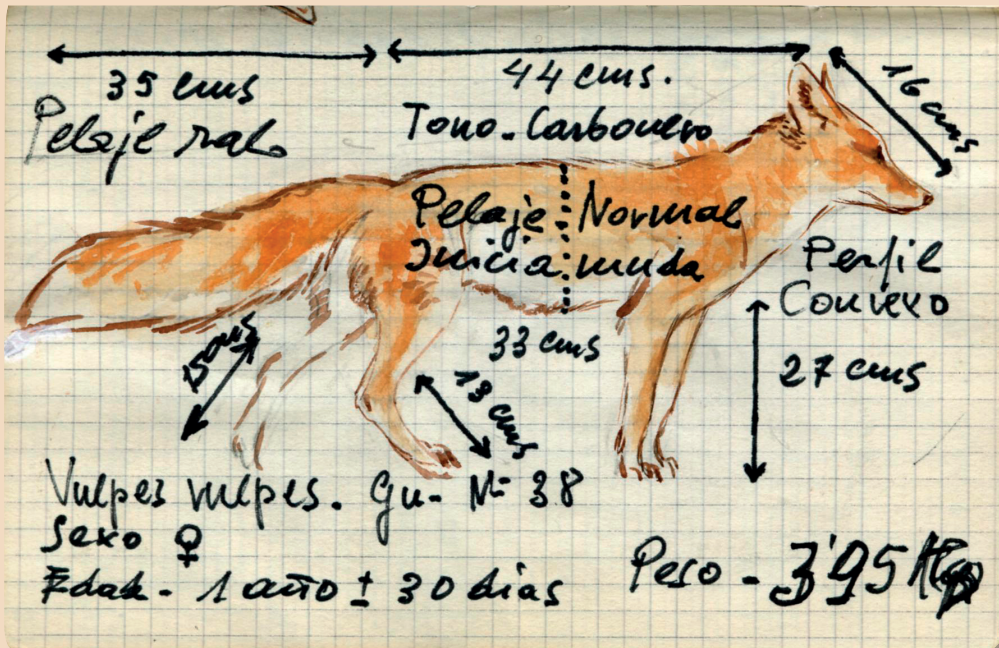 35 cms
44 cms.
16 cms
Pelaje ralo
Tono-Carbonero
Pelaje-Normal
Inicia muda
Perfil
Convexo
33 cms
27 cms
15 cms
13 cms
Vulpes vulpes. Gu- Nº 38
Sexo ♀
Edad - 1 año ± 30 dias
Peso - 3'95 Kgs